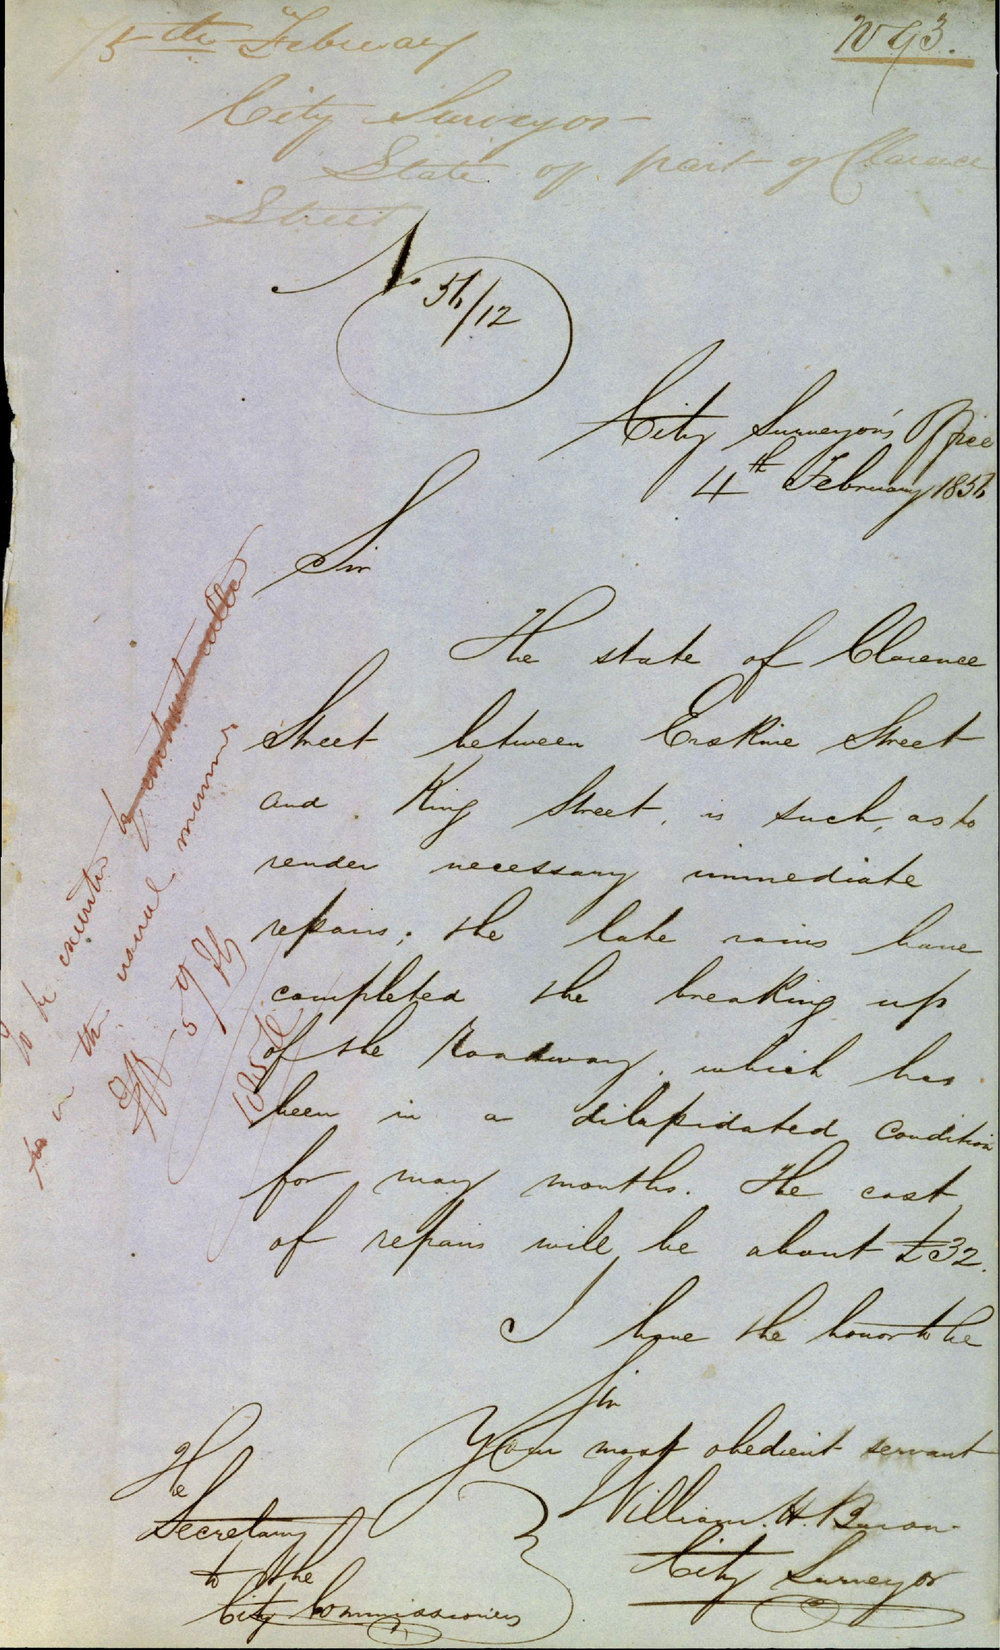 No 93.
5th February
City Surveyor
State of part of Clarence
Street
No 56/12
City Surveyor's Office
4th February 1856
Sir
The state of Clarence
Street between Erskine Street
and King Street, is such, as to
render necessary immediate
repairs; the late rains have
completed the breaking up
of the Roadway, which has
been in a dilapidated condition
for may months. The cost
of repairs will be about £32.
I have the honor to be
Sir
Your most obedient servant
William. H.
City Surveyor
The
Secretary
to the
City Commissioners
To be executed by contract
in the usual manner